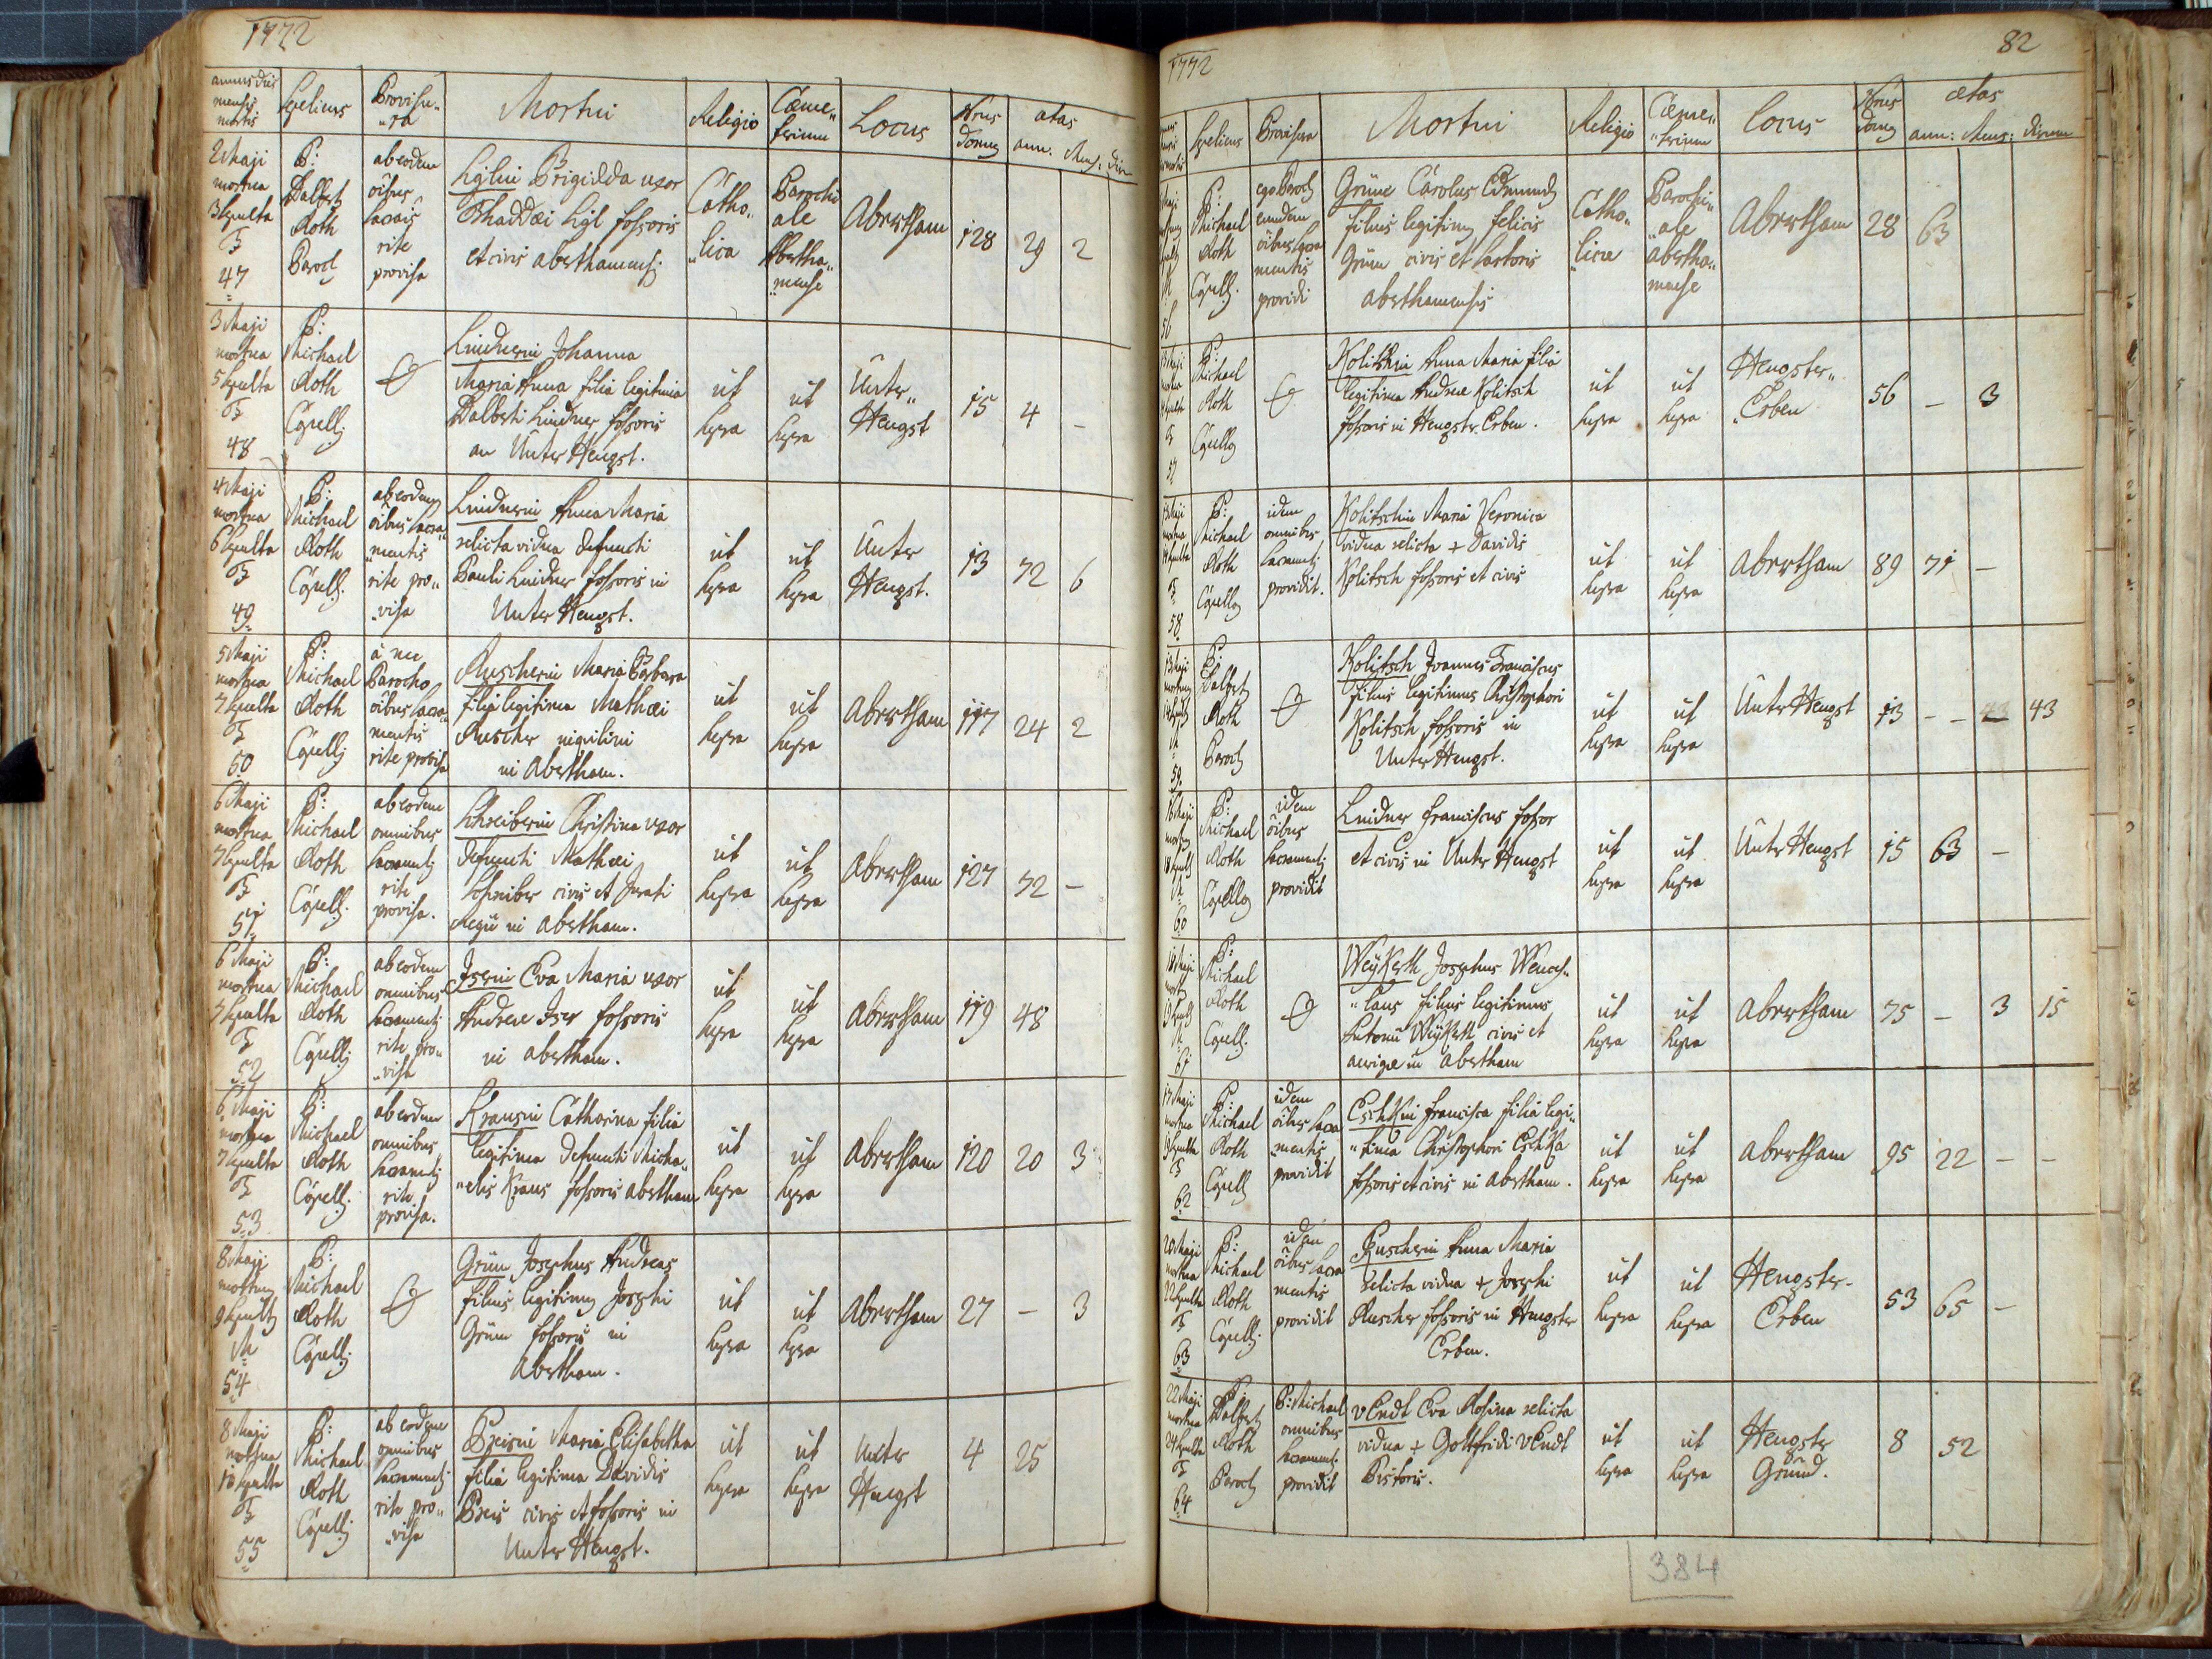 1772
annus dies
mensis
mortis
Sepeliens
Provisu„
„ra
Mortui
Religio
Cæme„
terium
Locus
Nrus
domus
ætas
ann: Mens: dier
2 Maji
mortua
3 sepulta
47
P:
Dalbert
Roth
Paroch
ab eodem
õibus
sacris
rite
provisa
Brigidda uxor
Thaddæi
fossoris
et civis aberthamensis
Catho„
„lica
Parochi
ale
Abertha„
„mense
Abertham
128
29
2
3 Maji
mortua
5 sepulta
48
P:
Michael
Roth
Capell
Lindnerin Johanna
Maria Anna filia legitima
Dalberti Lindner fossoris
an Unter Hengst.
ut
supra
ut
supra
Unter„
Hengst
15
4
-
4 Maji
mortua
6 sepulta
49
P:
Michael
Roth
Capell.
ab eodem
õibus sacra„
„mentis
rite pro„
„visa
Lindnerin Anna Maria
relicta vidua defuncti
Pauli Lindner fossoris in
Unter Hengst.
ut
supra
ut
supra
Unter
Hengst.
13
72
6
5 Maji
mortua
7 sepulta
50
P:
Michael
Roth
Capell
à me
Parocho
õibus sacra„
mentis
rite provisa
Ruscherin Maria Barbara
filia legitima Mathæi
Ruscher
in Abertham.
ut
supra
ut
supra
Abertham
117
24
2
6 Maji
mortua
7 sepulta
51
P:
Michael
Roth
Capell.
ab eodem
omnibus
sacramentis
rite
provisa.
Schreiberin Christina uxor
defuncti Mathæi
Schreiber civis et Jurati
Regii in Abertham.
ut
supra
ut
supra
Abertham
127
72
-
6 Maji
mortua
7 sepulta
52
P:
Michael
Roth
Capell
ab eodem
omnibus
sacramentis
rite pro„
„visa
Iserin Eva Maria uxor
Andreæ Iser fossoris
in Abertham.
ut
supra
ut
supra
Abertham
119
48
6 Maji
mortua
7 sepulta
53
P:
Michael
Roth
Capell
ab eodem
omnibus
sacramentis
rite
provisa.
Krausin Catharina filia
legitima defuncti Micha„
„elis Kraus fossoris Abertham
ut
supra
ut
supra
Abertham
120
20
3
8 Maji
mortuus
9 sepultus
54
P:
Michael
Roth
Capell
Grün Josephus Andreas
filius legitimus Josephi
Grün fossoris in
Abertham.
ut
supra
ut
supra
Abertham
27
-
3
8 Maji
mortua
10 sepulta
55
P:
Michael
Roth
Capell
ab eodem
omnibus
sacramentis
rite pro„
„visa
Preisin Maria Elisabetha
filia legitima Davidis
Preis civis et fossoris in
Unter Hengst.
ut
supra
ut
supra
Unter
Hengst
4
25
1772
82
Sepeliens
Provisura
Mortui
Religio
Cæme„
„terium
Locus
Nrus
domus
ætas
ann: Mens: dierum
56
P:
Michael
Roth
Capell.
ego Paroch
eundem
õibus sacra
mentis
providi
Grüne Carolus Edmundus
filius legitimus felicis
Grün civis et sartoris
aberthamensis
Catho„
„licæ
Parochi„
„ale
abertha„
mense
Abertham
28
63
57
P:
Michael
Roth
Capellg
Kolitschin Anna Maria filia
legitima Andreæ Kolitsch
fossoris in Hengster Erben.
ut
supra
ut
supra
Hengster„
Erben
56
-
3
58
P:
Michael
Roth
Capellg
idem
omnibus
sacramentis
providit.
Kolitschin Maria Veronica
vidua relicta + Davidis
Kolitsch fossoris et civis
ut
supra
ut
supra
Abertham
89
71
-
59
P:
Dalbert
Roth
Paroch
Kolitsch Joannes Franciscus
filius legitimus Christophori
Kolitsch fossoris in
Unter Hengst.
ut
supra
ut
supra
Unter Hengst
13
-
-
43
60
P:
Michael
Roth
Capellg
idem
õibus
sacramentis
providit
Lindner Franciscus fossor
et civis in Unter Hengst
ut
supra
ut
supra
Unter Hengst
15
63
-
61
P:
Michael
Roth
Capell.
Weÿkerth Josephus Wences„
„laus filius legitimus
Antonii Weÿkerth civis et
aurigæ in Abertham
ut
supra
ut
supra
Abertham
75
-
3
15
17 Maji
mortua
19 sepulta
62
P:
Michael
Roth
Capell
idem
õibus sacra
mentis
providit
Francisca filia legi„
„tima Christophori
fossoris et civis in Abertham.
ut
supra
ut
supra
Abertham
95
22
-
-
20 Maji
mortua
22 sepulta
63
P:
Michael
Roth
Capell.
idem
õibus sacra
mentis
providit
Ruscherin Anna Maria
relicta vidua + Josephi
Ruscher fossoris in Hengster
Erben.
ut
supra
ut
supra
Hengster-
Erben
53
65
-
22 Maji
mortua
24 sepulta
64
P:
Dalbert
Roth
Paroch
P: Michael
omnibus
sacramentis
providit
vEndt Eva Rosina relicta
vidua + Gottfridi vEndt
Pistoris.
ut
supra
ut
supra
Hengster
Grund.
8
52
384